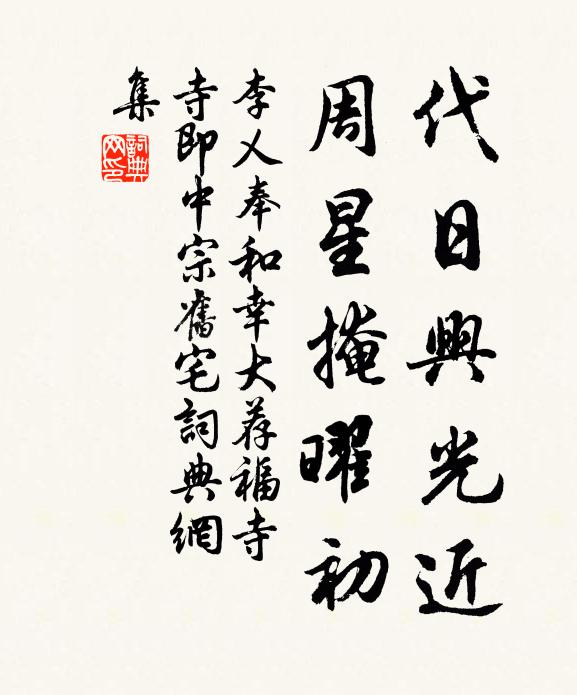 代日興光近
周星掩曜初
李乂奉和幸大荐福寺
寺即中宗舊宅詞典網
集
詞典网印